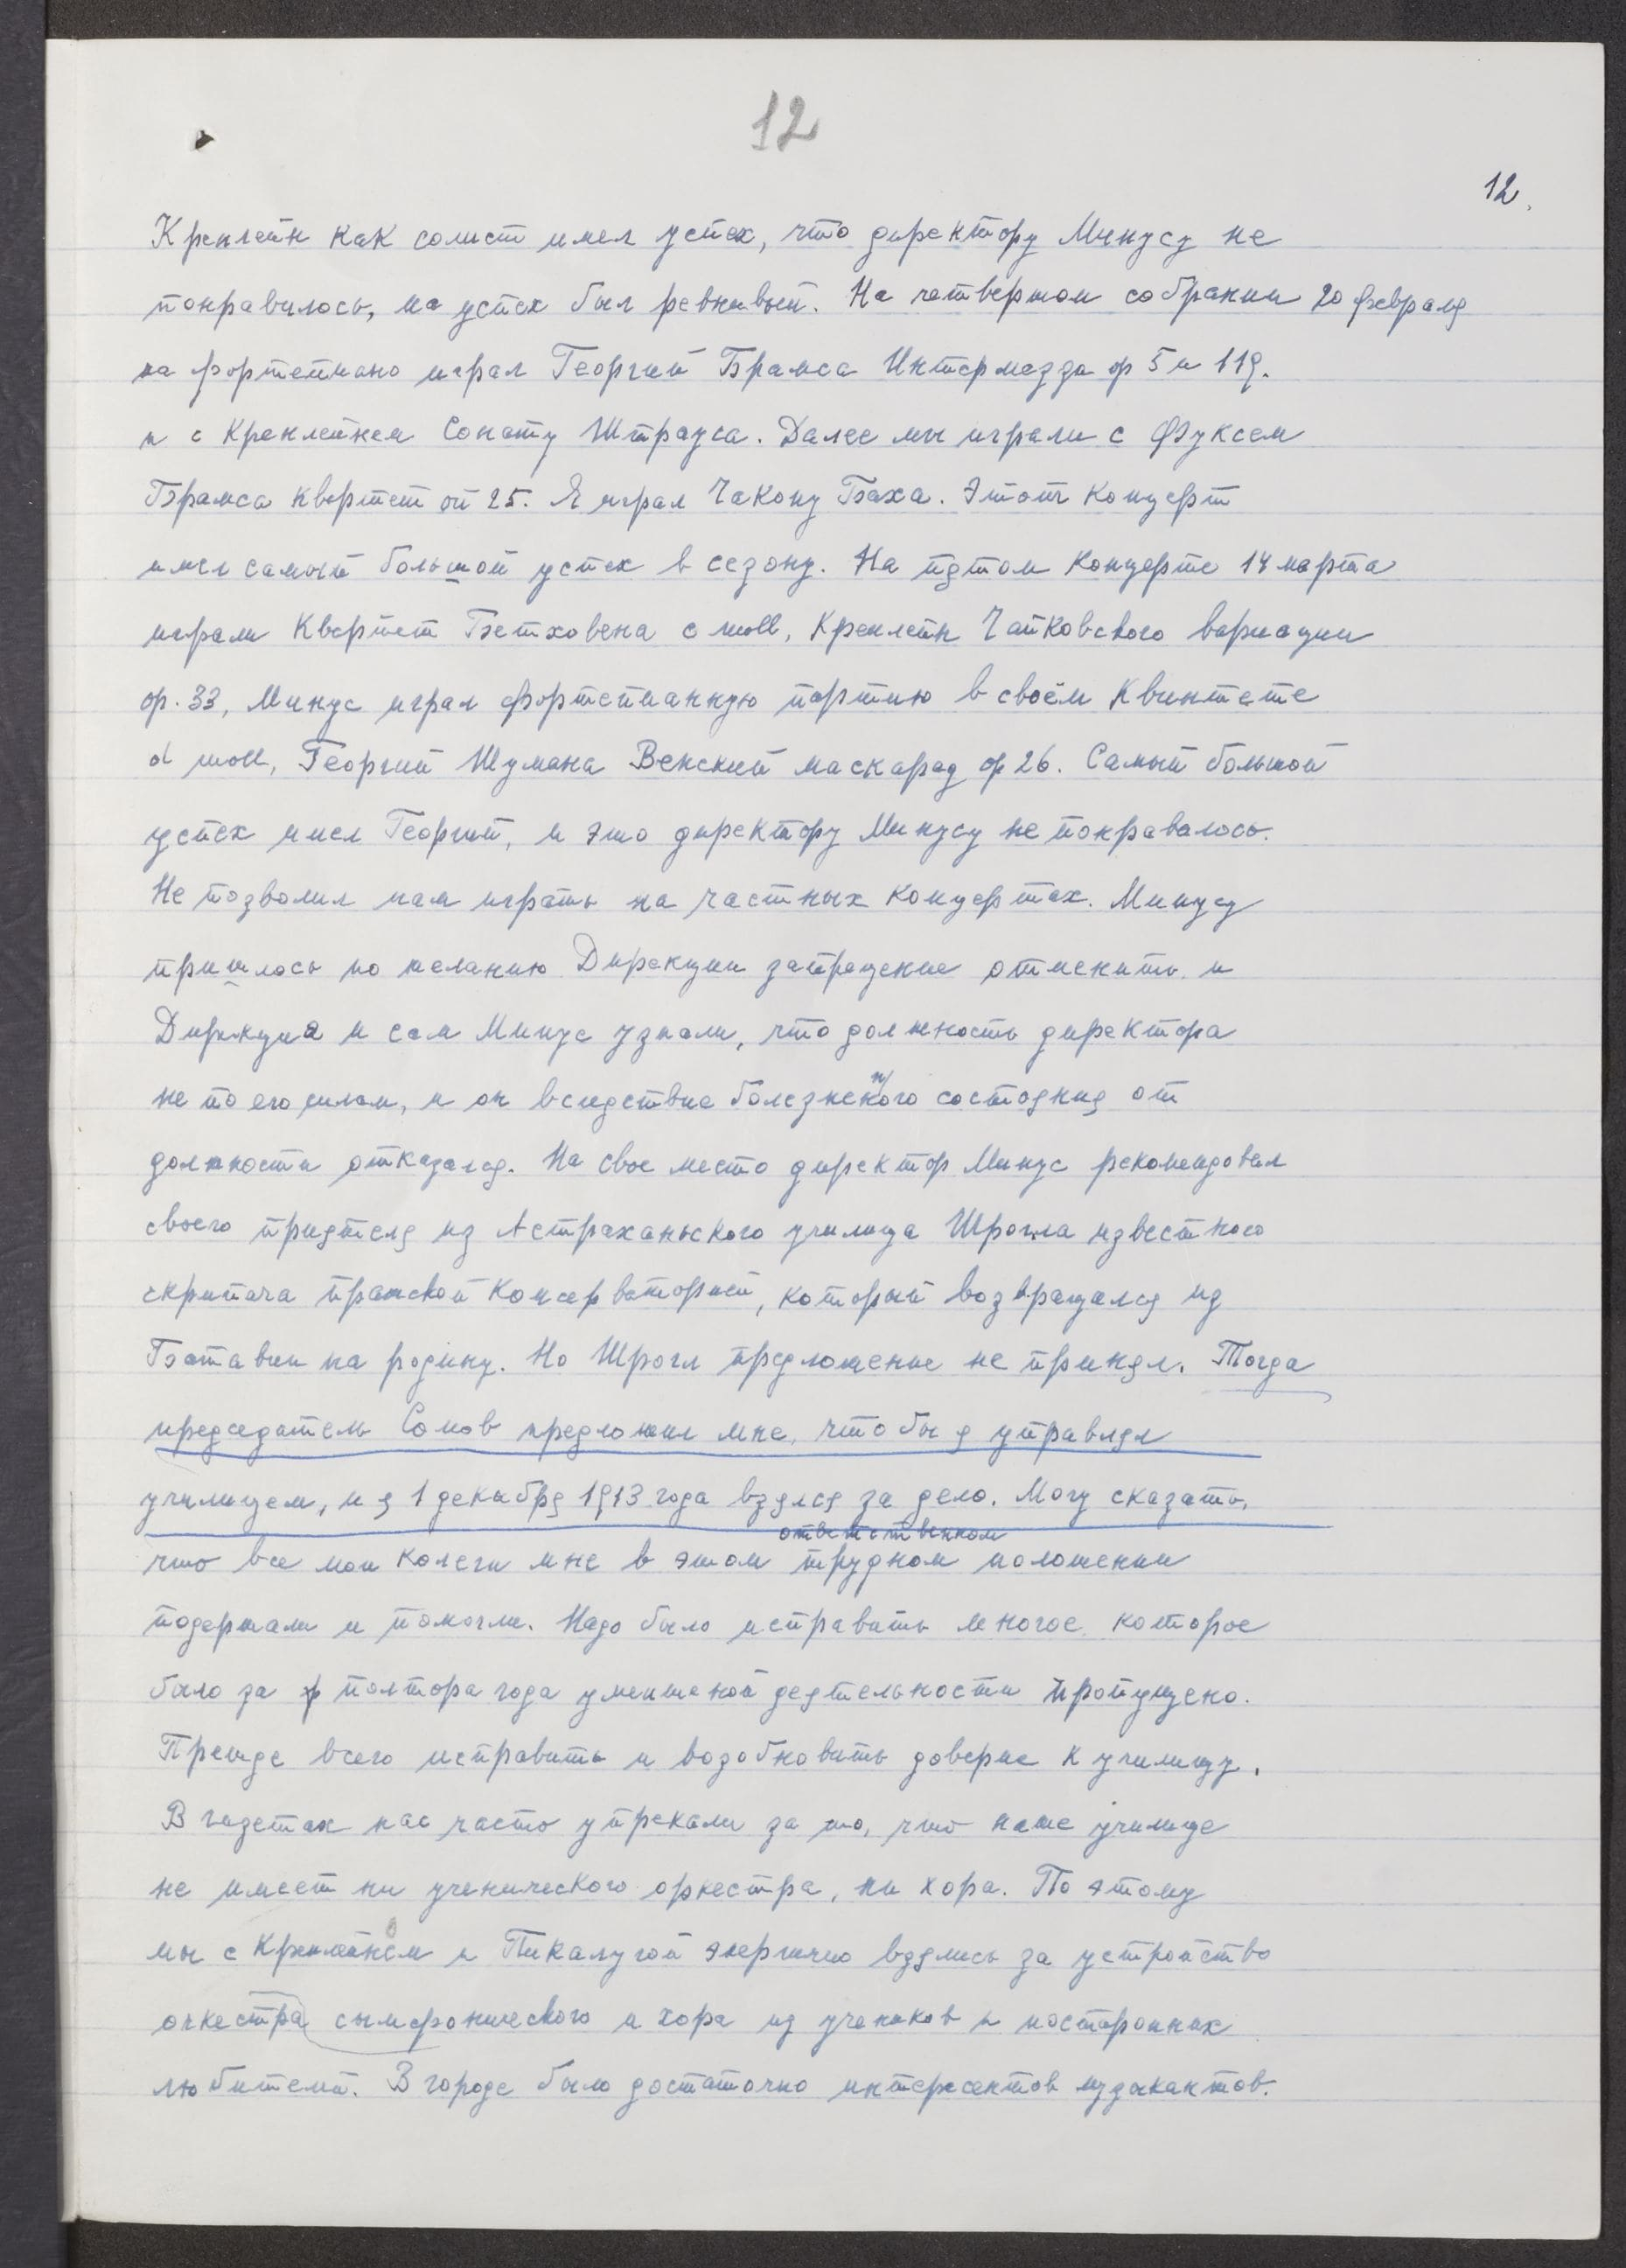 12
12.
Кренлейн как солист имел успех, что директору Минусу не
понравилось, на успех был ревнивый. На четвертом собрании 20 февраля
на фортепиано играл Георгий Брамса Интермеззо op 5 и 119.
и с Кренлейнем Сонату Штрауса. Далее мы играли с Фуксем
Брамса Квартет оп 25. Я играл Чакону Баха. Этот концерт
имел самый большой успех в сезону. На пятом концерте 14 марта
играли Квартет Бетховена c moll, Кренлейн Чайковского вариации
op. 33, Минус играл фортепианную партию в своём Квинтете
d moll, Георгий Шумана Венский маскарад op 26. Самый большой
успех имел Георгий, и это директору Минусу не понравалось.
Не позволил нам играть на частных концертах. Минусу
пришлось по желанию Дирекции запрещение отменить. и
Дирекция и сам Минус узнали, что должность директора
не по его силам, и он вследствие болезненого состояния от
должности отказался. На свое место директор Минус рекомендовал
своего приятеля из Астраханьского училища Шрогла известного
скрипача пражской Консерваторией, который возвращался из
Батавии на родину. Но Шрогл предложение не принял. Тогда
председатель Сомов предложил мне, чтобы я управлял
училищем, и я 1 декабря 1913 года взялся за дело. Могу сказать,
ответственном
что все мои колеги мне в этом трудном положении
подержали и помогли. Надо было исправить многое которое
было за полтора года умешеной деятельности пропущено.
Прежде всего исправить и возобновить доверие к училищу.
В газетах нас часто упрекали за то, что наше училище
не имеет ни ученического оркестра, ни хора. По этому
мы с Кренлейнем и Пикалугой энергично взялись за устройство
оркестра симфонического и хора из учеников и посторонних
любителей. В городе было достаточно интересентов музыкантов.